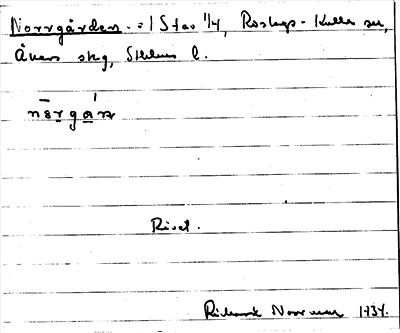 Norrgården = 1 Stav 1/4, Roslags-Kulla sn,
Åkers skg, Sthlms l.
nǝrgan
Rivet.
Rickard Norrman 1934.